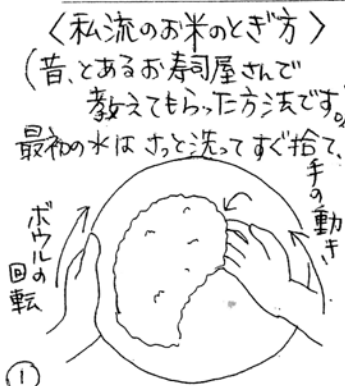 〈私流のお米のとぎ方〉
(昔、とあるお寿司屋さんで
教えてもらった方法です。)
最初の水はさっと洗ってすぐ捨て、
手の動き
ボウルの
回転
①